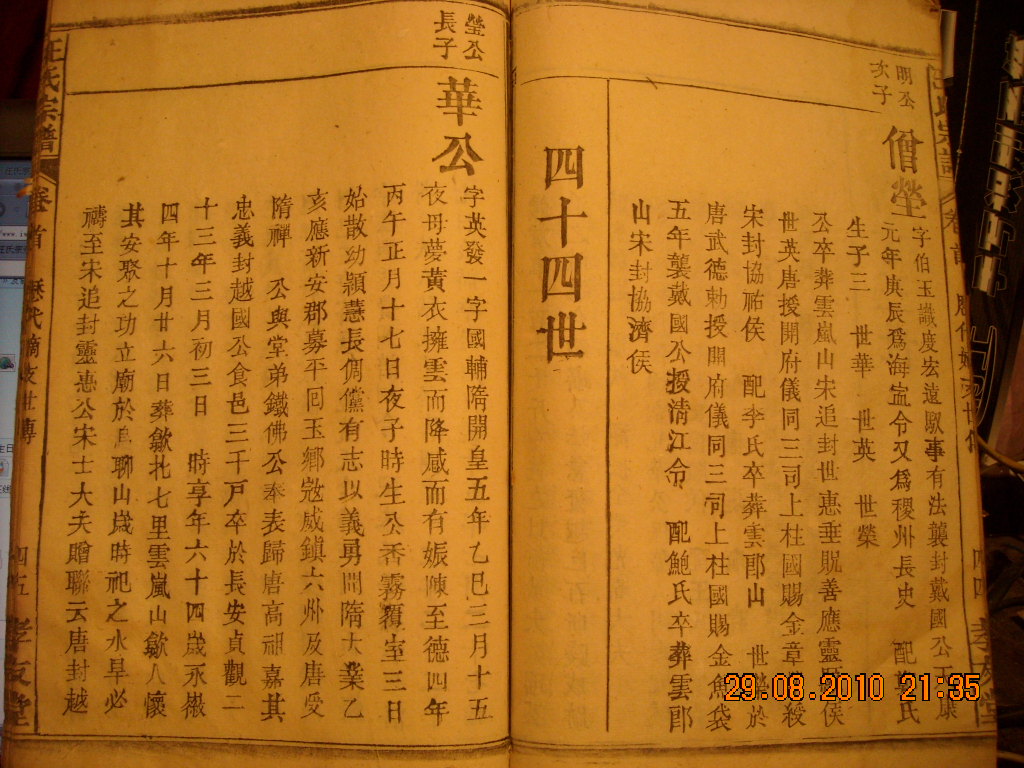 明公
次子
僧瑩
字伯玉識度宏遠馭事有法襲封戴國公
元年庚辰爲海盐令又爲稷州長史 配 氏
生子三 世華 世英 世榮
公卒葬雲嵐山宋追封世惠垂貺善應靈 侯
世英唐授開府儀同三司上柱國賜金章殺
宋封協祐侯 配李氏卒葬雲郎山 世 於
唐武德勅授開府儀同三司上柱國賜金魚袋
五年襲戴國公授清江令 配鮑氏卒葬雲郎
山宋封協濟侯
四十四世
瑩公
長子
華公
字英發一字國輔隋開皇五年乙巳三月十五
夜母夢黃衣擁雲而降感而有娠陳至德四年
丙午正月十七日夜子時生公香霧覆室三日
始散幼穎慧長倜儻有志以義勇聞隋大業乙
亥應新安郡募平囘玉鄉寇威鎮六州及唐受
隋禪 公與堂弟鐵佛公奉表歸唐高祖嘉其
忠義封越國公食邑三千戶卒於長安貞觀二
十三年三月初三日 時享年六十四歲永徽
四年十月廿六日葬歙北七里雲嵐山歙人懷
其安聚之功立廟於烏聊山歲時祀之水旱必
禱至宋追封靈惠公宋士大夫贈聯云唐封越
汪氏宗譜 卷首 歷代 世傳 四五 孝友堂
29.08.2010 21:35